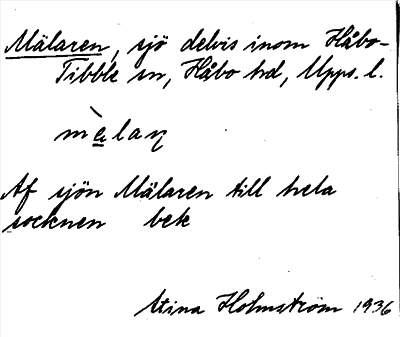 Mälaren, sjö delvis inom Håbo-
Tibble sn, Håbo hd, Upps. l.
mèlaꞃ
Af sjön Mälaren till hela
socknen bek
Stina Holmström 1936